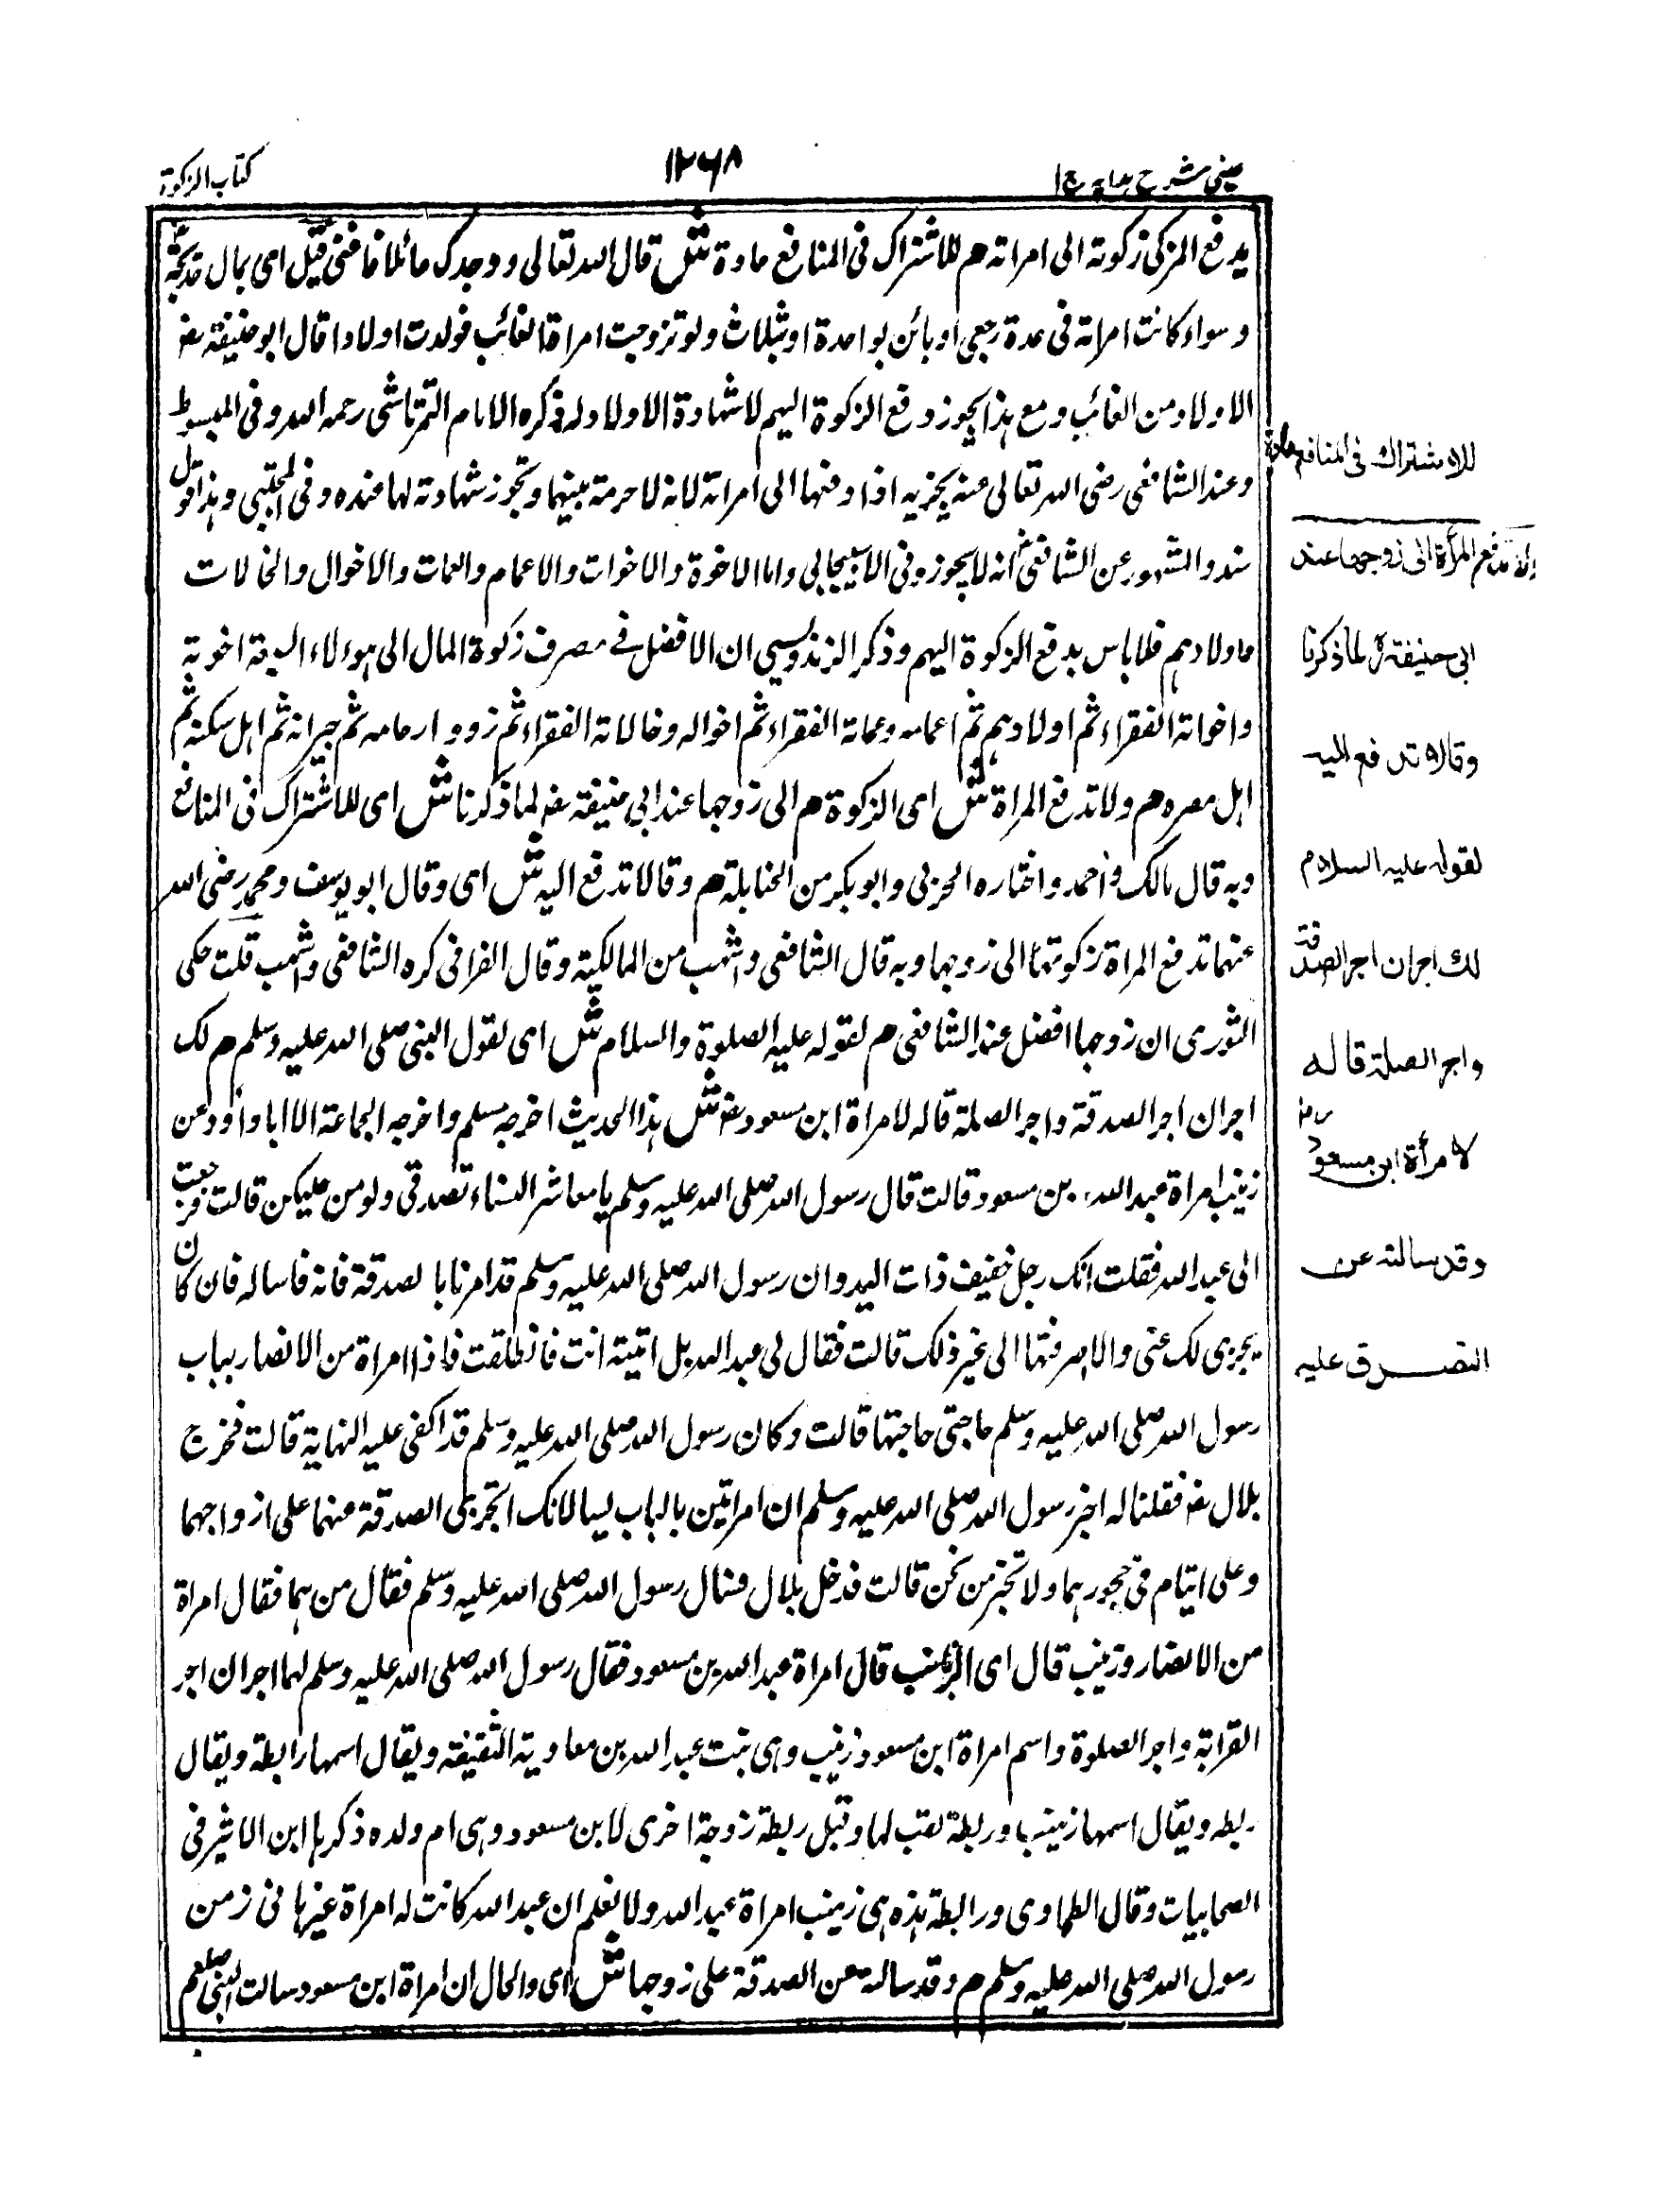 عینی شرح ہدایہ ج ا
١٢٦٨
کتاب الزکوة
یدفع المزکی زکوتہ الی امراتہ ھم للاشتراک فی المنافع عادة ش قال اللہ تعالی ووجدک عائلا فاغنی قیل ای بمال خدیجة
وسواء کانت امراتہ فی عدة رجعی او بائن بواحدة او ثبلاث ولو تزوجت امراة الغائب فولدت اولادا قال ابو حنیفة رضہ
الاولاد من الغائب ومع ہذا یجوز دفع الزکوة الیہم لاشہادة الاولاد لہ ذکرہ الامام التمرتاشی رحمہ اللہ وفی المبسوط
وعند الشافعی رضی اللہ تعالی عنہ یجزیہ اذا دفعہا الی امراتہ لانہ لاحرمة بینہما وتجوز شہادتہ لہا عندہ وفی المجتبی وہذا قول
والمشہور عن الشافعی انہ لایجوز وفی الاسبیجابی واما الاخوة والاخوات والاعمام والعمات والاخوال والخالات
فلا باس بدفع الزکوة الیہم وذکر الزندویسی ان الافضل فے مصرف زکوة المال الی ہولاء السبعة اخوتہ
واخواتہ الفقراء ثم اولادہم ثم اعمامہ وعماتہ الفقراء ثم اخوالہ وخالاتہ الفقراء ثم ذوو ارحامہ ثم جیرانہ ثم اہل سکنہ ثم
اہل مصرہ ھم ولا تدفع المراة ش ای الزکوة ھم الی زوجہا عند ابی حنیفة رضہ لما ذکرنا ش ای للاشتراک فی المنافع
وبہ قال مالک واحمد واختارہ الخرقی وابوبکر من الحنابلة ھم وقالا تدفع الیہ ش ای وقال ابو یوسف ومحمد رضی اللہ
عنہما تدفع المراة زکوتہا الی زوجہا وبہ قال الشافعی واشہب من المالکیة وقال القرافی کرہ الشافعی واشہب قلت حکی
الثوری ان زوجہا افضل عند الشافعی ھم لقولہ علیہ الصلوة والسلام ش ای لقول النبی صلی اللہ علیہ وسلم ھم لک
اجران اجر الصدقة واجر الصلة قالہ لامراة ابن مسعود رضہ ش ہذا الحدیث اخرجہ مسلم واخرجہ الجماعة الا ابا داؤد عن
زینب امراة عبد اللہ بن مسعود قالت قال رسول اللہ صلی اللہ علیہ وسلم یا معاشر النساء تصدقن ولو من حلیکن قالت فرجعت
الی عبد اللہ فقلت انک رجل خفیف ذات الید وان رسول اللہ صلی اللہ علیہ وسلم قد امرنا بالصدقة فاتہ فاسالہ فان کان
یجزی لک عنی والا صرفتہا الی غیر ذلک قالت فقال لی عبد اللہ بل اتیتہ انت فانطلقت فاذا امراة من الانصار بباب
رسول اللہ صلی اللہ علیہ وسلم حاجتی حاجتہا قالت وکان رسول اللہ صلی اللہ علیہ وسلم قد القی علیہ المہابة قالت فخرج
بلال رضہ فقلنا لہ اخبر رسول اللہ صلی اللہ علیہ وسلم ان امراتین بالباب لیسالانک اتجزی الصدقة عنہما علی ازواجہما
وعلی ایتام فی حجورہما ولا تخبر من نحن قالت فدخل بلال فسال رسول اللہ صلی اللہ علیہ وسلم فقال من ہما فقال امراة
من الانصار وزینب قال ای الزیانب قال امراة عبد اللہ بن مسعود فقال رسول اللہ صلی اللہ علیہ وسلم لہما اجران اجر
القرابة واجر الصلوة واسم امراة ابن مسعود زینب وہی بنت عبد اللہ بن معاویة الثقیفة ویقال اسمہا رابطة ویقال
ربطہ ویقال اسمہا زینب وربطة لقب لہا وقیل ربطة زوجة اخری لابن مسعود وہی ام ولدہ ذکرہا ابن الاثیر فی
الصحابیات وقال الطحاوی ورابطة ہذہ ہی زینب امراة عبد اللہ ولا نعلم ان عبد اللہ کانت لہ امراة غیرہا فی زمن
رسول اللہ صلی اللہ علیہ وسلم ھم وقد سالتہ عن الصدقة علی زوجہا ش ای والحال ان امراة ابن مسعود سالت النبی صلعم
للاشتراك فی المنافع عادة
ولا تدفع المرأة الی زوجها عند
ابی حنیفة رح لما ذکرنا
وقالا تدفع الیه
لقوله علیه السلام
لك اجران اجر الصدقة
واجر الصلة قاله
لامرأة ابن مسعود رض
وقد سالته عن
التصدق علیه